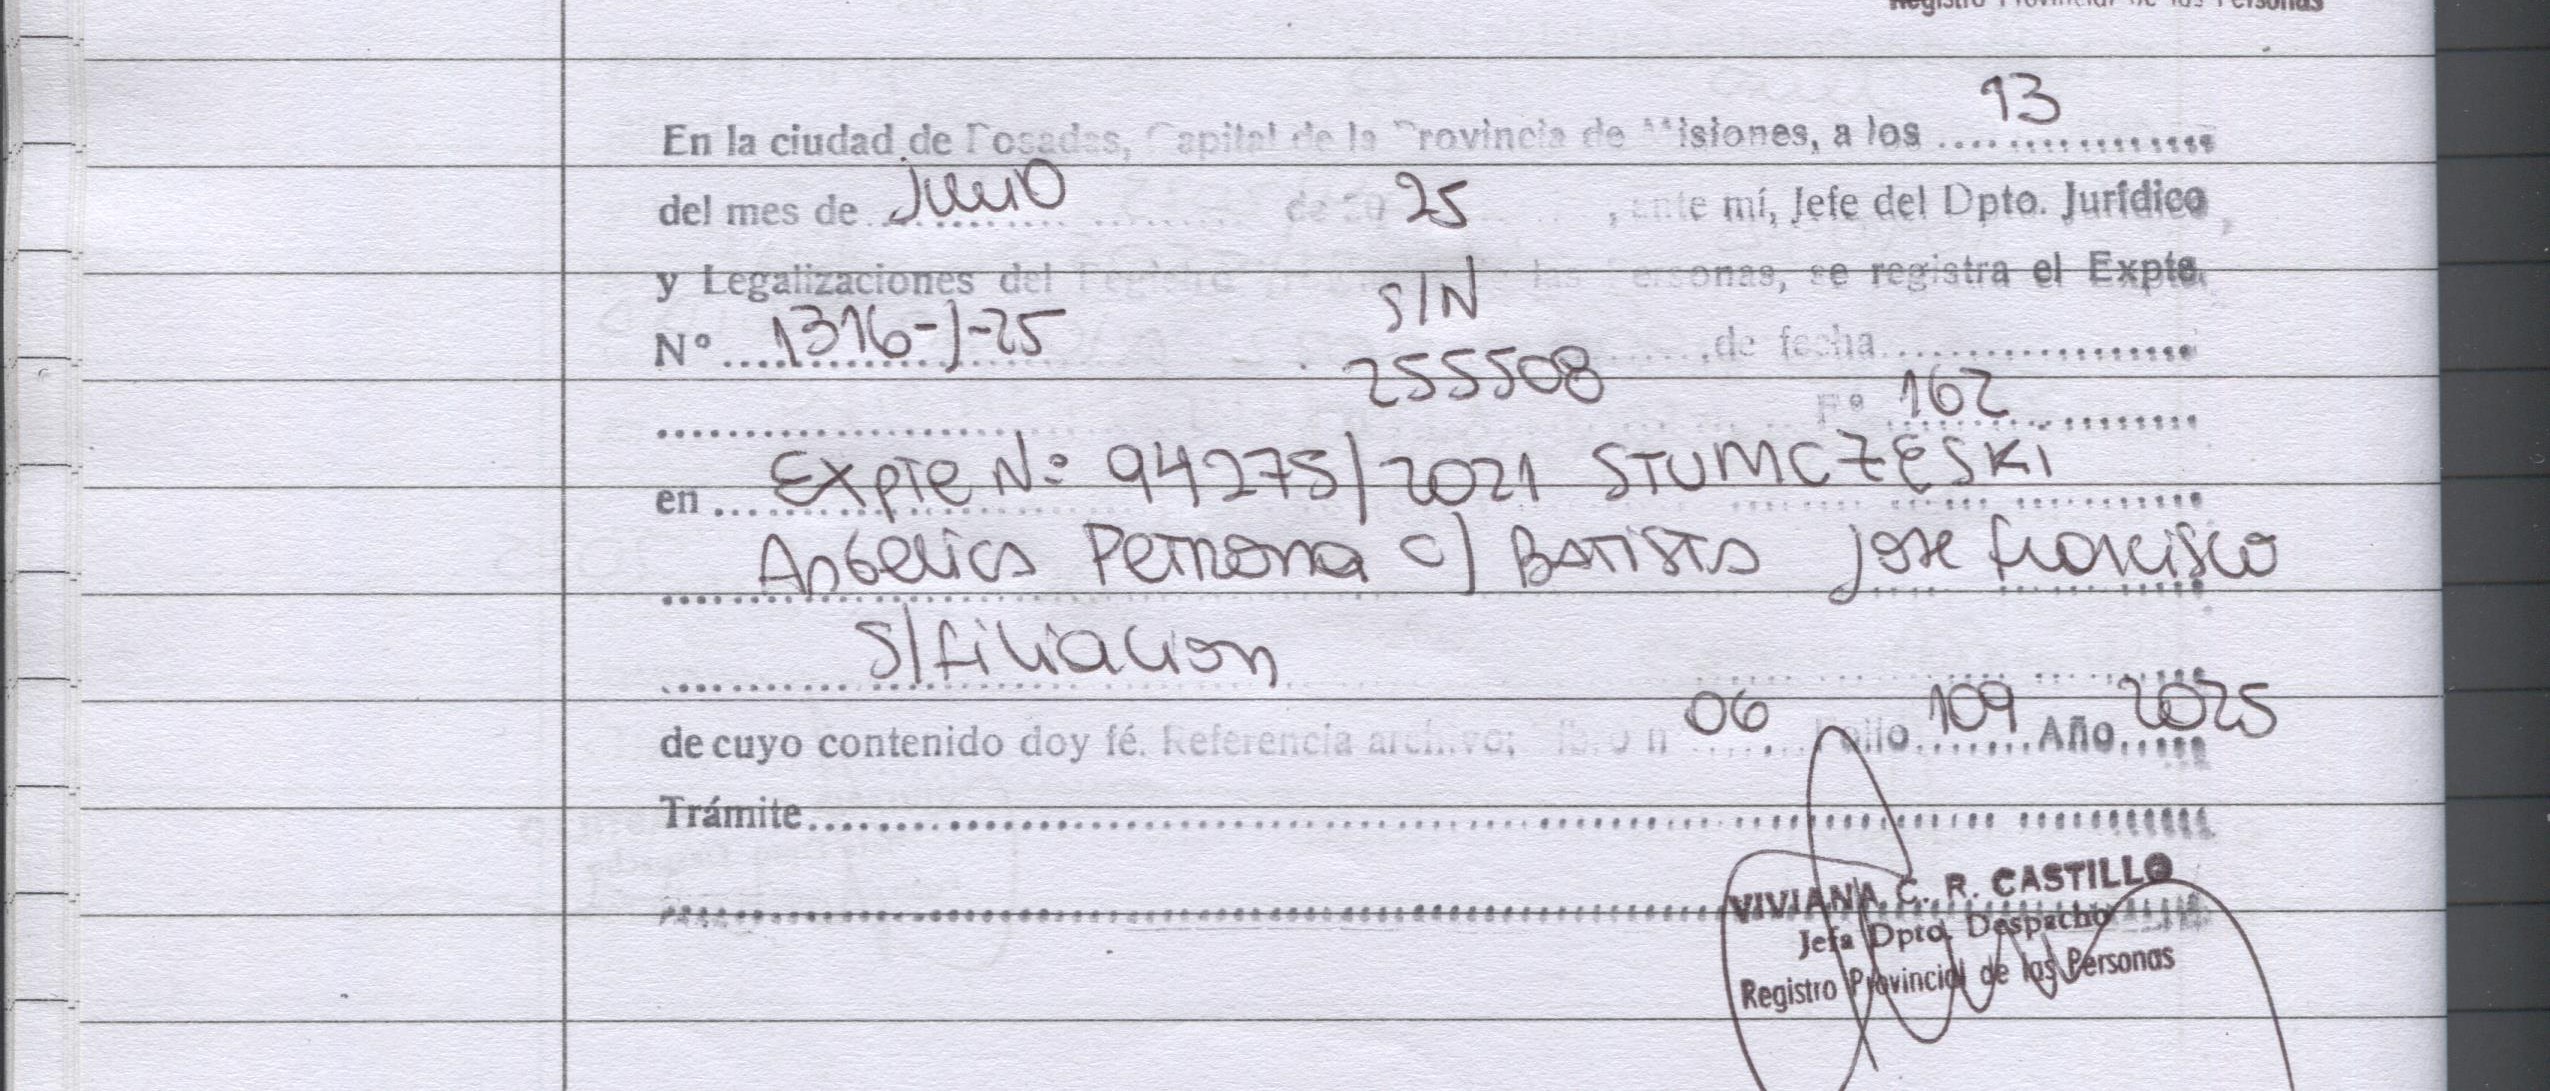 Registro Provincial de las Personas
En la ciudad de Posadas, Capital de la Provincia de Misiones, a los 13
del mes de de 20 25, ante mí, Jefe del Dpto. Jurídico
y Legalizaciones del Registro Provincial de las Personas, se registra el Expte.
S/N
Nº 1316-J-25 , de fecha
255508 Fº 162
en Expte Nº 94275/2021 STUMCZESKI
Angelica Petrona c/ Batista Jose Francisco
S/filiacion
de cuyo contenido doy fé. Referencia archivo; libro n 06 Folio 109 Año 2025
Trámite
VIVIANA C. R. CASTILLO
Jefa Dpto. Despacho
Registro Provincial de las Personas